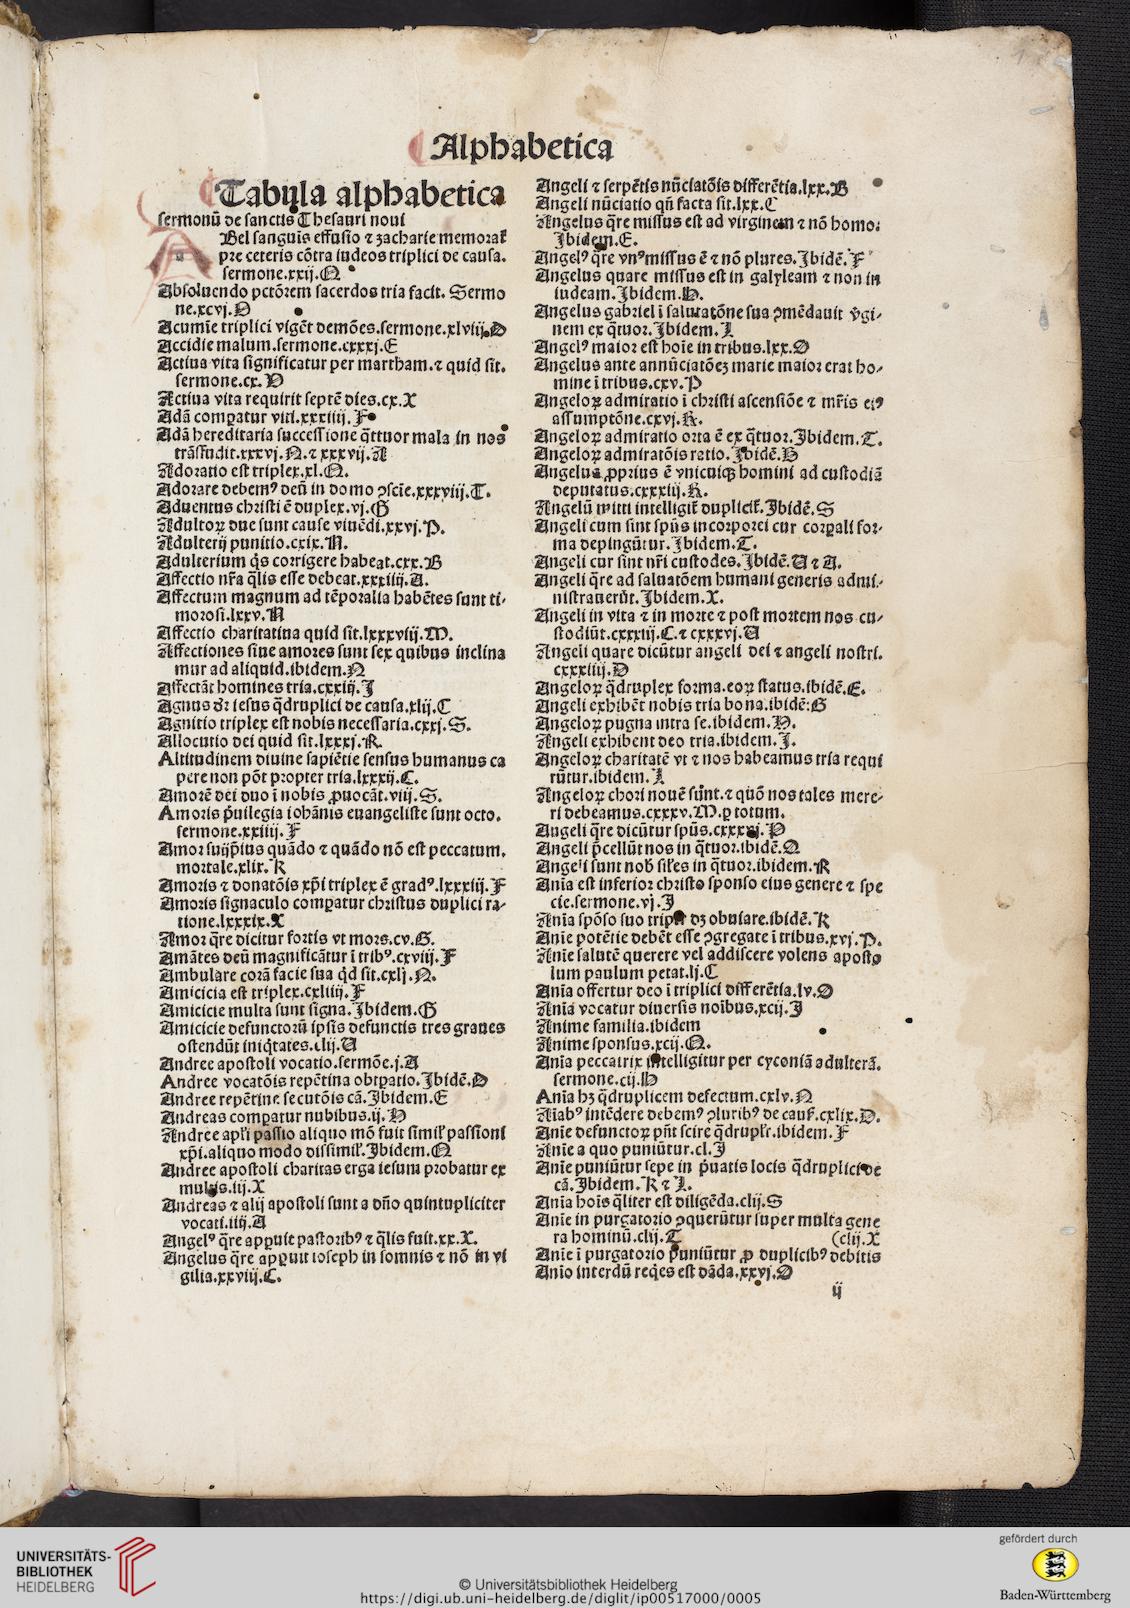 Alphabetica
Tabula alphabetica
sermonū de sanctis Thesauri noui
ABel sanguis effusio ⁊ zacharie memorat᷑
pre ceteris cōtra iudeos triplici de causa.
sermone.xxij.Q.
Absoluendo pctōrem sacerdos tria facit. Sermo
ne.xcvj.D
Acumīe triplici vigēt demōes.sermone.xlviij.D
Accidie malum.sermone.cxxxj.E
Actiua vita significatur per martham.⁊ quid sit.
sermone.cx.V
Actiua vita requirit septē dies.cx.X
Adā comꝑatur viti.xxxiiij.F
Adā hereditaria successione q̄ttuor mala in nos
trāsfudit.xxxvj.N.⁊ xxxvij.A
Adoratio est triplex.xl.Q.
Adorare debemꝰ deū in domo ꝯscīe.xxxviij.T.
Aduentus christi ē duplex.vj.G
Adultoꝝ due sunt cause viuēdi.xxvj.P.
Adulterij punitio.cxix.N.
Adulterium q̄s corrigere habeat.cxx.B
Affectio nr̄a q̄lis esse debeat.xxxiiij.A.
Affectum magnum ad tēporalia habētes sunt ti-
morosi.lxxv.N
Affectio charitatiua quid sit.lxxxviij.M.
Affectiones siue amores sunt sex quibus inclina
mur ad aliquid.ibidem.N
Affectāt homines tria.cxxiij.I
Agnus dr̄ iesus q̄druplici de causa.xlij.C
Agnitio triplex est nobis necessaria.cxxj.S.
Allocutio dei quid sit.lxxxj.R.
Altitudinem diuine sapiētie sensus humanus ca
pere non pōt propter tria.lxxxij.C.
Amorē dei duo ī nobis ꝓuocāt.viij.S.
Amoris p̄uilegia iohānis euangeliste sunt octo.
sermone.xxiiij.F
Amor suijp̄ius quādo ⁊ quādo nō est peccatum.
mortale.xlix.K
Amoris ⁊ donatōis xp̄i triplex ē gradꝰ.lxxxiij.F
Amoris signaculo comꝑatur christus duplici ra-
tione.lxxxix.X
Amor q̄re dicitur fortis vt mors.cv.G.
Amātes deū magnificātur ī tribꝰ.cxviij.F
Ambulare corā facie sua q̄d sit.cxlj.N.
Amicicia est triplex.cxliiij.F
Amicicie multa sunt signa.Ibidem.G
Amicicie defunctorū ipsis defunctis tres graues
ostendūt iniq̄tates.clij.U
Andree apostoli vocatio.sermōe.j.A
Andree vocatōis repētina obtꝑatio.Ibidē.D
Andree repētine secutōis cā.Ibidem.E
Andreas comꝑatur nubibus.ij.H
Andree apl̄i passio aliquo mō fuit simil᷑ passioni
xp̄i.aliquo modo dissimil᷑.Ibidem.Q
Andree apostoli charitas erga iesum probatur ex
multis.iij.X
Andreas ⁊ alij apostoli sunt a dn̄o quintupliciter
vocati.iiij.A
Angelꝰ q̄re apꝑuit pastoribꝰ ⁊ q̄lis fuit.xx.X.
Angelus q̄re apꝑuit ioseph in somnis ⁊ nō in vi
gilia.xxviij.C.
Angeli ⁊ serpētis nūciatōis differētia.lxx.B
Angeli nūciatio qn̄ facta sit.lxx.C
Angelus q̄re missus est ad virginem ⁊ nō homo:
Ibidem.E.
Angelꝰ q̄re vnꝰmissus ē ⁊ nō plures.Ibidē.F
Angelus quare missus est in galyleam ⁊ non in
iudeam.Ibidem.H.
Angelus gabriel ī salutatōne sua ꝯmēdauit v̄gi-
nem ex q̄tuor.Ibidem.I
Angelꝰ maior est hoīe in tribus.lxx.D
Angelus ante annūciatōeꝫ marie maior erat ho-
mine ī tribus.cxv.P
Angeloꝝ admiratio ī christi ascensiōe ⁊ mr̄is eiꝰ
assumptōne.cxvj.K.
Angeloꝝ admiratio orta ē ex q̄tuor.Ibidem.T.
Angeloꝝ admiratōis ratio.Ibidē.H
Angelus ꝓprius ē vnicuiqꝫ homini ad custodiā
deputatus.cxxxiij.K.
Angelū mitti intelligit᷑ duplicit᷑.Ibidē.S
Angeli cum sint spūs incorporei cur corꝑali for-
ma depingūtur.Ibidem.T.
Angeli cur sint nr̄i custodes.Ibidē.U ⁊ A.
Angeli q̄re ad saluatōem humani generis admi-
nistrauerūt.Ibidem.X.
Angeli in vita ⁊ in morte ⁊ post mortem nos cu-
stodiūt.cxxxiij.C.⁊ cxxxvj.U
Angeli quare dicūtur angeli dei ⁊ angeli nostri.
cxxxiiij.D
Angeloꝝ q̄druplex forma.eoꝝ status.ibidē.E.
Angeli exhibēt nobis tria bona.ibidē:G
Angeloꝝ pugna intra se.ibidem.H.
Angeli exhibent deo tria.ibidem.I.
Angeloꝝ charitatē vt ⁊ nos habeamus tria requi
rūtur.ibidem.L
Angeloꝝ chori nouē sūnt.⁊ quō nos tales mere-
ri debeamus.cxxxv.M.ꝑ totum.
Angeli q̄re dicūtur spūs.cxxxvj.P
Angeli p̄cellūt nos in q̄tuor.ibidē.Q
Angeli sunt nob̄ sil̄es in q̄tuor.ibidem.R
Anīa est inferior christo sponso eius genere ⁊ spe
cie.sermone.vj.I
Anīa spōso suo tripl᷑r dꝫ obuiare.ibidē.K
Anīe potētie debēt esse ꝯgregate ī tribus.xvj.P.
Anīe salutē querere vel addiscere volens aposto
lum paulum petat.lj.C
Anīa offertur deo ī triplici differētia.lv.D
Anīa vocatur diuersis noībus.xcij.I
Anime familia.ibidem
Anime sponsus.xcij.Q.
Anīa peccatrix intelligitur per cyconiā adulterā.
sermone.cij.H
Anīa hꝫ q̄druplicem defectum.cxlv.N
Aīabꝰ intēdere debemꝰ ꝯluribꝰ de caus᷑.cxlix.D.
Anīe defunctoꝝ pn̄t scire q̄drupl᷑r.ibidem.F
Anīe a quo puniūtur.cl.I
Anīe puniūtur sepe in p̄uatis locis q̄druplici de
cā.Ibidem.K ⁊ L.
Anīa hoīs q̄liter est diligēda.clij.S
Anīe in purgatorio ꝯquerūtur super multa gene
ra hominū.clij.T (clij.X
Anīe ī purgatorio puniūtur ꝓ duplicibꝰ debitis
Anīo interdū req̄es est dāda.xxvj.D
ij
UNIVERSITÄTS-
BIBLIOTHEK
HEIDELBERG
© Universitätsbibliothek Heidelberg
https://digi.ub.uni-heidelberg.de/diglit/ip00517000/0005
gefördert durch
Baden-Württemberg